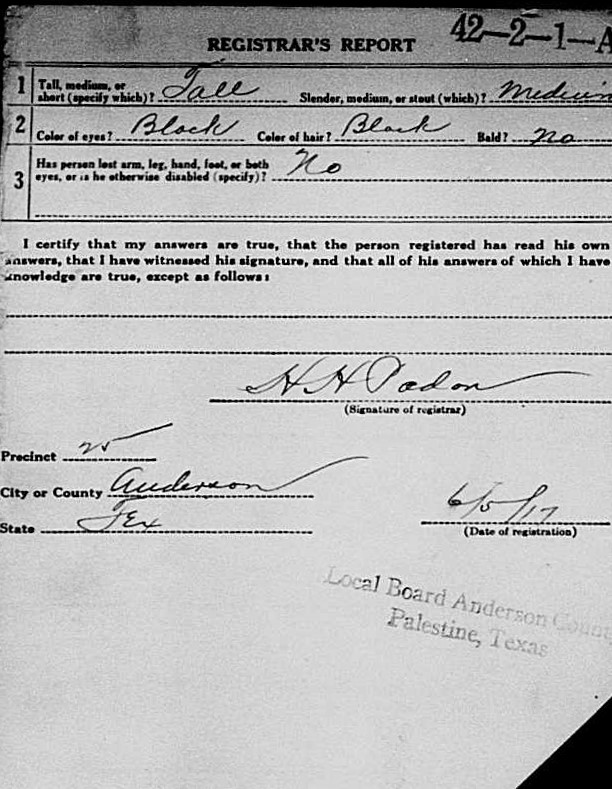 42-2-1-A
REGISTRAR'S REPORT
1 Tall, medium, or short (specify which)? Tall Slender, medium, or stout (which)? Medium
2 Color of eyes? Black Color of hair? Black Bald? no
3 Has person lost arm, leg, hand, foot, or both
eyes, or is he otherwise disabled (specify)? No
I certify that my answers are true, that the person registered has read his own
answers, that I have witnessed his signature, and that all of his answers of which I have
knowledge are true, except as follows:
H H Padon
(Signature of registrar)
Precinct 25
City or County Anderson
State Tex
6/5/17
(Date of registration)
Local Board Anderson County
Palestine, Texas